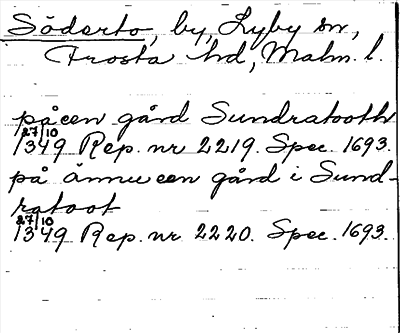 Söderto, by, Lyby sn,
Frosta hd, Malm. l.
på een gård Sundratooth
27/10
1349 Rep. nr 2219. Spec. 1693.
på ännu een gård i Sund-
ratoot
27/10
1349 Rep. nr 2220. Spec. 1693.